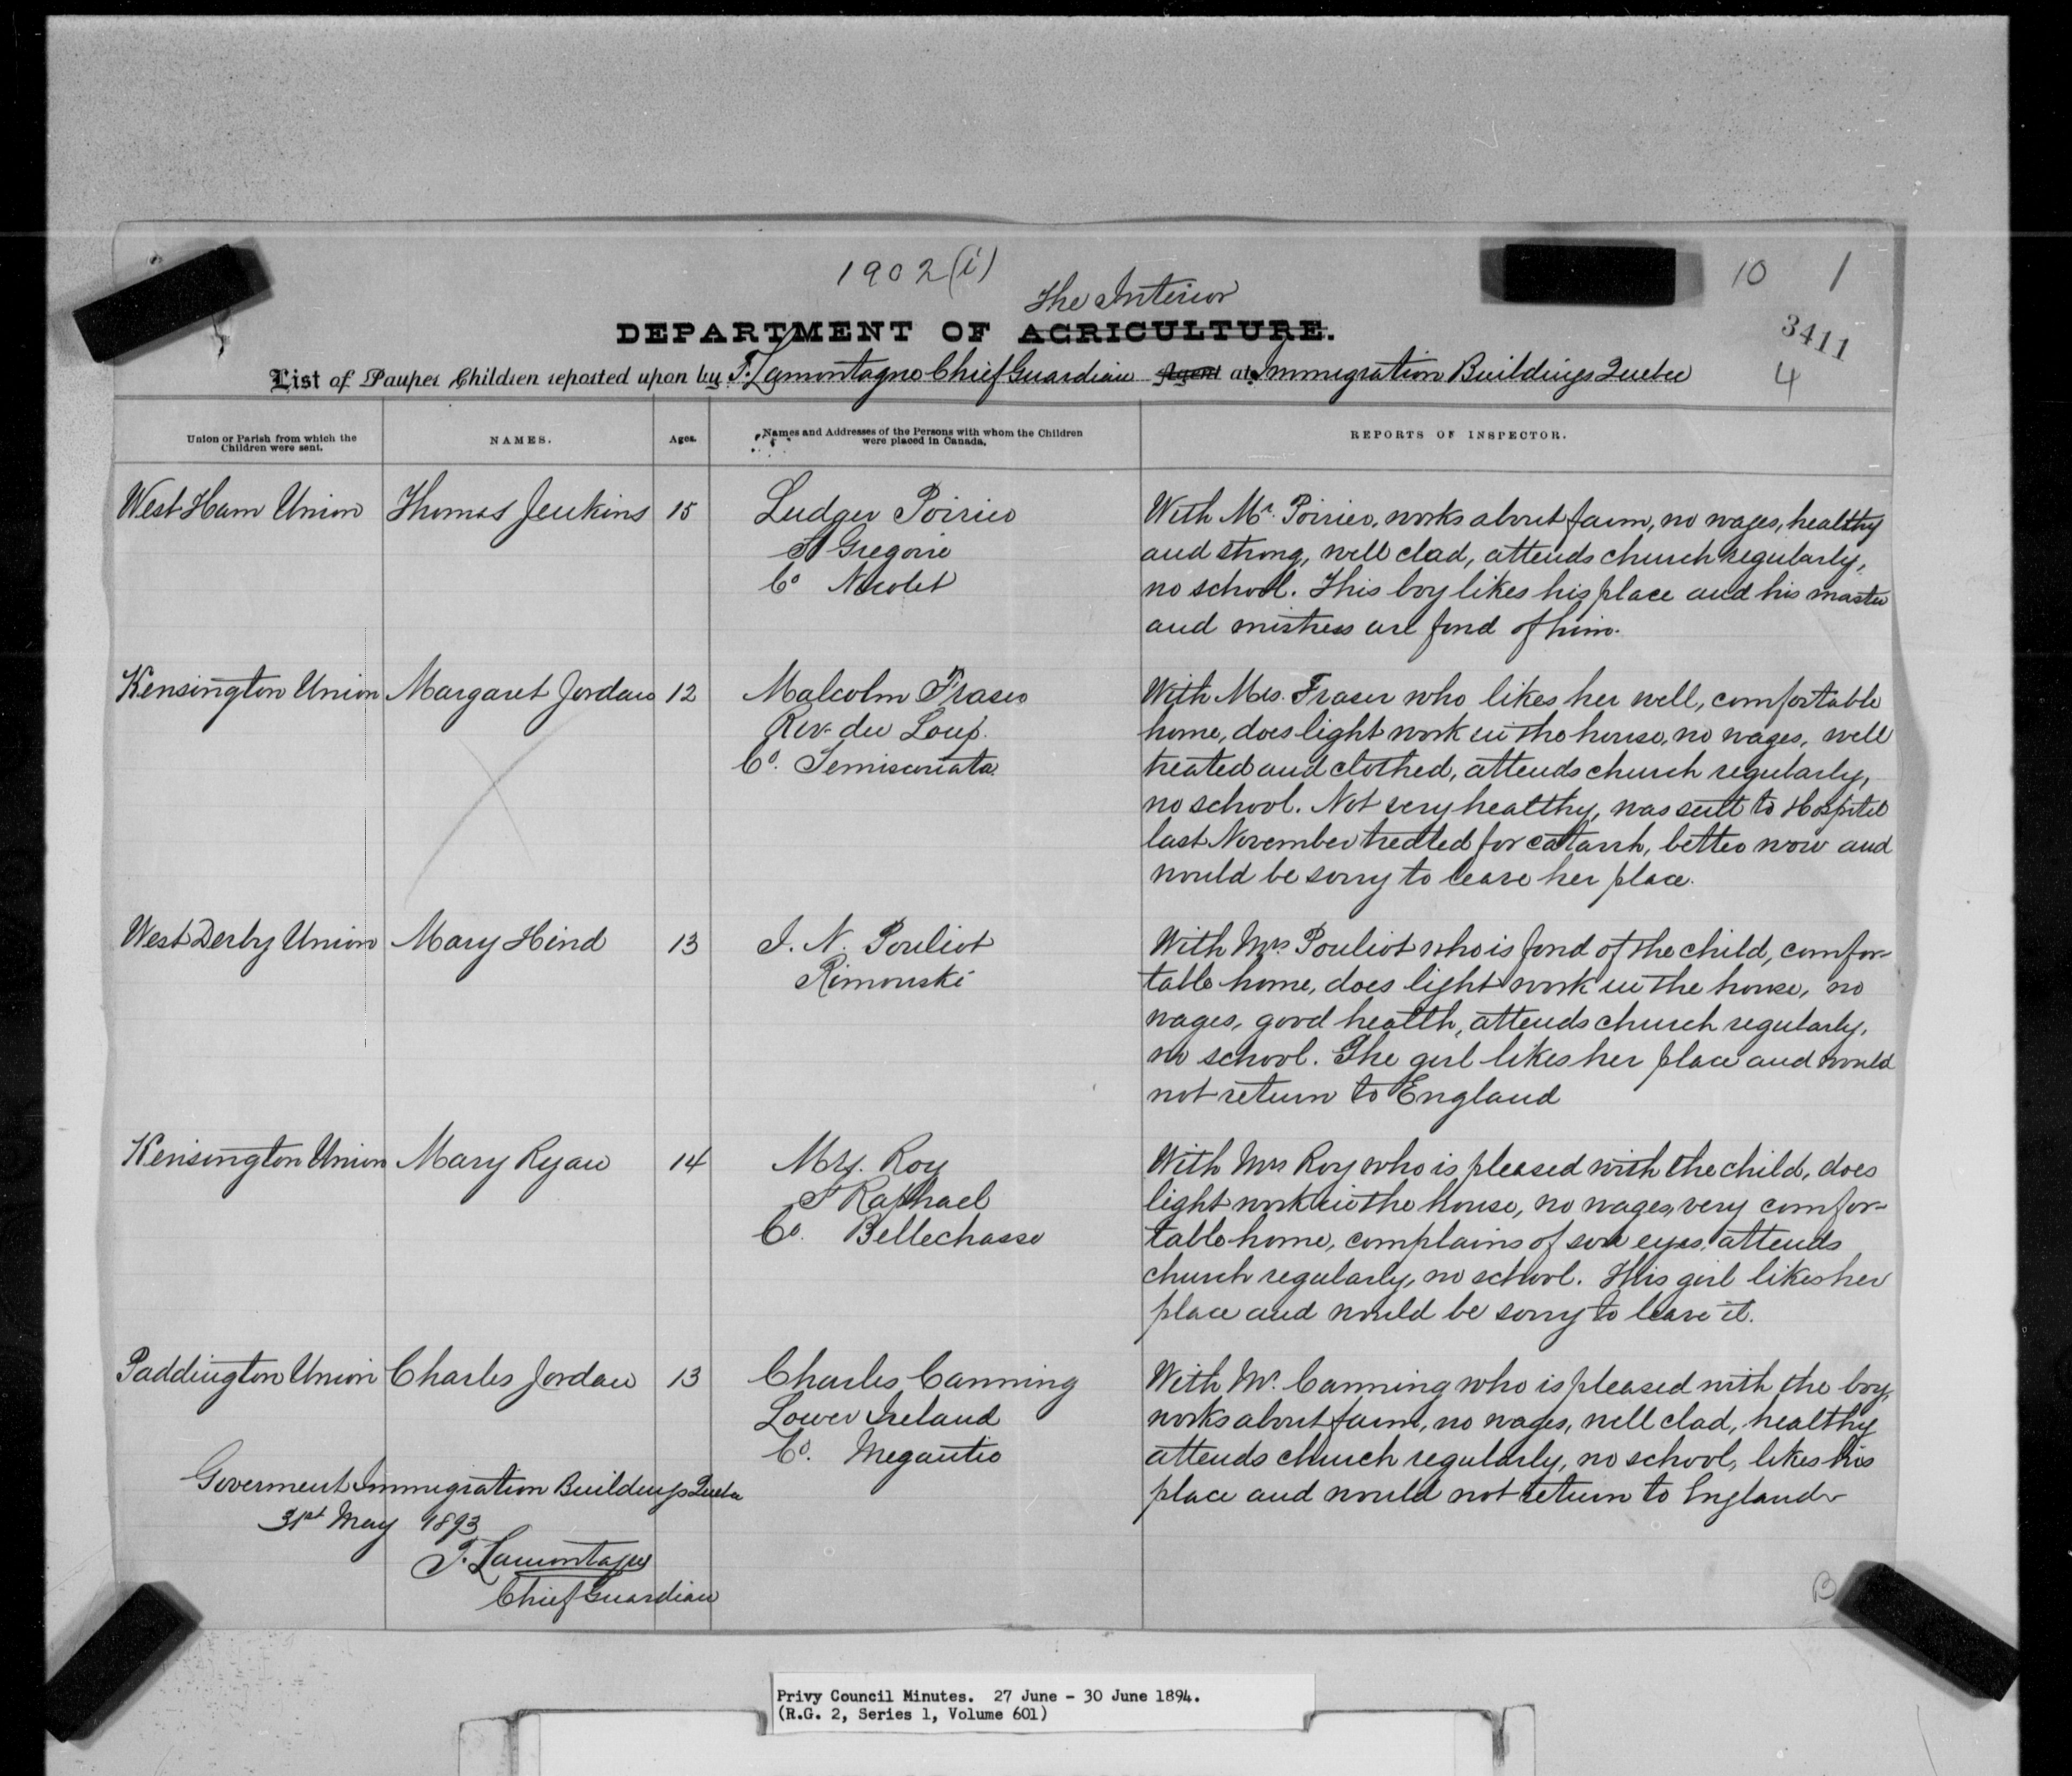 1902(i)
10 1
3411
4
The Interior
DEPARTMENT OF AGRICULTURE.
List of Pauper Children reported upon by T. Lamontagne Chief Guardian Agent at Immigration Buildings Quebec
Union or Parish from which the Children were sent.
NAMES.
Ages.
Names and Addresses of the Persons with whom the Children were placed in Canada.
REPORTS OF INSPECTOR.
West Ham Union
Thomas Jenkins
15
Ludger Poirier
St Gregoire
Co Nicolet
With Mr. Poirier, works about farm, no wages, healthy
and strong, well clad, attends church regularly,
no school. This boy likes his place and his master
and mistress are fond of him.
Kensington Union
Margaret Jordan
12
Malcolm Fraser
Riv. du Loup.
Co. Temiscouata
With Mrs. Fraser who likes her well, comfortable
home, does light work in the house, no wages, well
treated and clothed, attends church regularly,
no school. Not very healthy, was sent to Hospital
last November treated for catarrh, better now and
would be sorry to leave her place.
West Derby Union
Mary Hind
13
J. N. Pouliot
Rimouski
With Mrs. Pouliot who is fond of the child, comfor-
table home, does light work in the house, no
wages, good health, attends church regularly,
no school. The girl likes her place and would
not return to England
Kensington Union
Mary Ryan
14
Mrs. Roy
St Raphael
Co. Bellechasse
With Mrs Roy who is pleased with the child, does
light work in the house, no wages, very comfor-
table home, complains of sore eyes, attends
church regularly, no school. This girl likes her
place and would be sorry to leave it.
Paddington Union
Charles Jordan
13
Charles Canning
Lower Ireland
Co. Megantic
With Mr. Canning who is pleased with the boy,
works about farm, no wages, well clad, healthy
attends church regularly, no school, likes his
place and would not return to England
Goverment Immigration Buildings Quebec
31st May 1893
T. Lamontagne
Chief Guardian
B
Privy Council Minutes. 27 June - 30 June 1894.
(R.G. 2, Series 1, Volume 601)